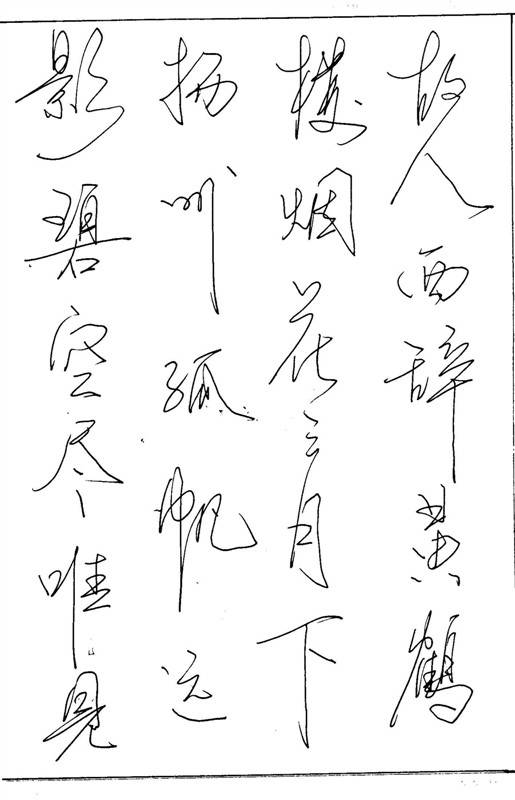 故人西辞黄鹤
楼烟花三月下
扬州孤帆远
影碧空尽唯见